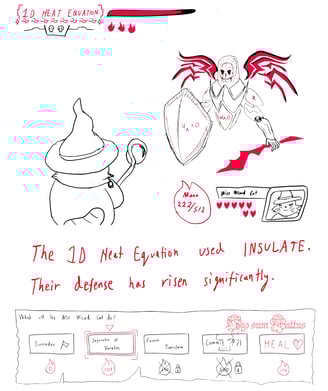 {1D HEAT EQUATION}
u_x=0
Mana
222/512
Miss Wizard Cat
The 1D Heat Equation used INSULATE.
Their defense has risen significantly.
What will the Miss Wizard Cat do?
Ego sum Cattus
Surrender
Separation of Variables
Fourier Transform
HEAL